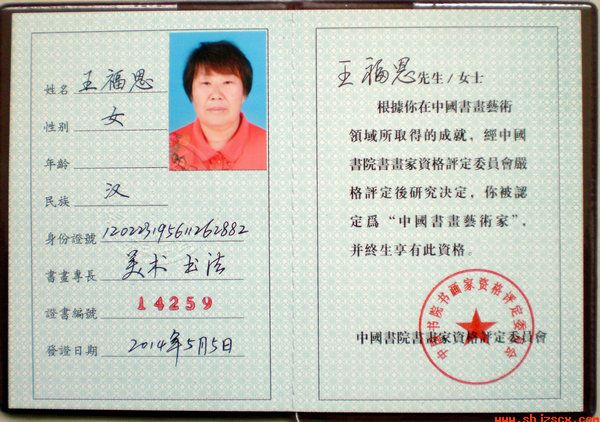 姓名 王福恩
性别 女
年龄
民族 汉
身份證號 120223195611262882
書畫專長 美术 书法
證書編號 14259
發證日期 2014年5月5日
王福恩先生/女士
根據你在中國書畫藝術
領域所取得的成就，經中國
書院書畫家資格評定委員會嚴
格評定後研究决定，你被認
定爲“中國書畫藝術家”，
并終生享有此資格。
中國書院書畫家資格評定委員會
中国书院书画家资格评定委员会
www.shizscx.com